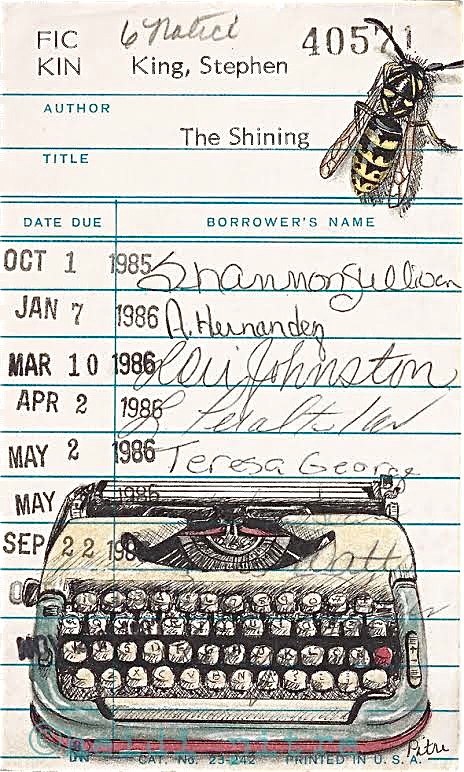 FIC 6 Notice
KIN King, Stephen 40571
AUTHOR
The Shining
TITLE
DATE DUE BORROWER'S NAME
OCT 1 1985 Shannon Sullivan
JAN 7 1986 A. Hernandez
MAR 10 1986 Lori Johnston
APR 2 1986
MAY 2 1986 Teresa George
MAY 1986
SEP 22 198
Petre
CAT. No. 23-242 PRINTED IN U. S. A.